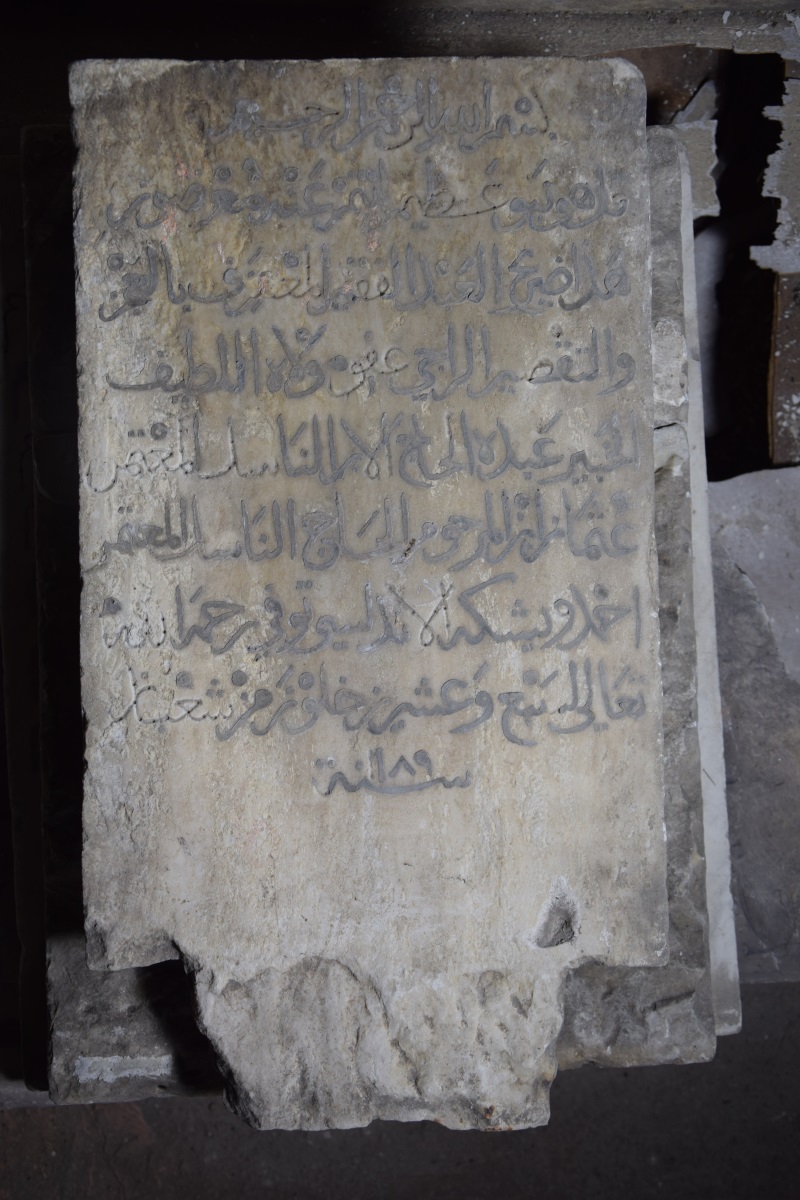 بسم الله الرحمن الرحيم
قل هو نبؤ عظيم انتم عنه معرضون
هذا ضريح العبد الفقير المعترف بالعجز
والتقصير الراجي عفو مولاه اللطيف
الخبير عبده الحاج الابر الناسك المعتمر
عثمان ابن المرحوم الحاج الناسك المعتمر
احمد ويشكه الاندلسي توفي رحمه الله
تعالى لسبع وعشرين خلون من شعبان
سنة ١٠٨٩